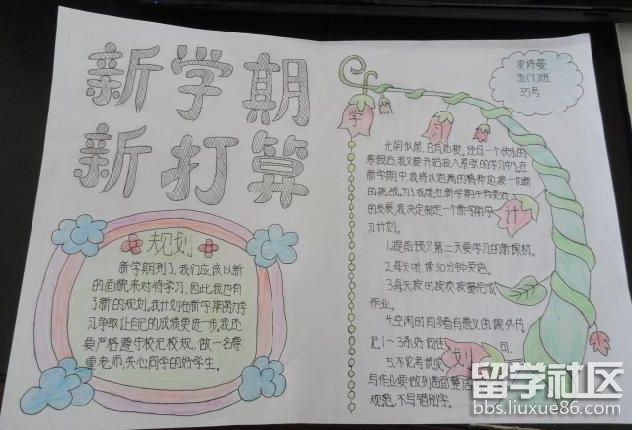 新学期
新打算
规划
新学期到了,我们应该以新
的面貌来对待学习,因此我也有
了新的规划。我计划在新学期努力学
习争取让自己的成绩更进一步,我还
要严格遵守校纪校规,做一名尊
重老师,关心同学的好学生。
五(1)班
35号
学
习
计
划
光阴似箭,日月如梭,
寒假
我又要开始投入紧张的学习中了。在
新学期中,我将以饱满的精神迎接一切新
的挑战。为了我能在新学期中有更好
的发展,我决定制定一个新学期学
习计划。
1.提前预习第二天要学习的新课材。
2.每天听读30分钟英语。
3.每天按时按质按量完成
作业。
4.空闲时间多看有意义的课外书
记1~3条好词佳句。
5.不论考试或
写作业要做到书面整洁
规范,不写错别字。
留学社区
bbs.liuxue86.com